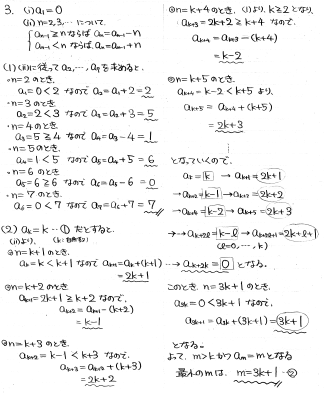 3. (i) a₁=0
(ii) n=2,3,… について
aₙ₋₁≧n ならば aₙ=aₙ₋₁−n
aₙ₋₁<n ならば aₙ=aₙ₋₁+n
(1) (ii)に従って a₂,…,a₇ を求めると、
・n=2のとき
a₁=0<2 なので a₂=a₁+2=2
・n=3のとき
a₂=2<3 なので a₃=a₂+3=5
・n=4のとき
a₃=5≧4 なので a₄=a₃−4=1
・n=5のとき、
a₄=1<5 なので a₅=a₄+5=6
・n=6のとき
a₅=6≧6 なので a₆=a₅−6=0
・n=7のとき、
a₆=0<7 なので a₇=a₆+7=7
(2) aₖ=k…① だとすると、
(ii)より、
◎n=k+1のとき、
aₖ=k<k+1 なので aₖ₊₁=aₖ+(k+1)
=2k+1
◎n=k+2のとき
aₖ₊₁=2k+1≧k+2 なので、
aₖ₊₂=aₖ₊₁−(k+2)
=k−1
◎n=k+3のとき、
aₖ₊₂=k−1<k+3 なので、
aₖ₊₃=aₖ₊₂+(k+3)
=2k+2
◎n=k+4のとき、(i)より、k≧2となり、
aₖ₊₃=2k+2≧k+4 なので、
aₖ₊₄=aₖ₊₃−(k+4)
=k−2
◎n=k+5のとき、
aₖ₊₄=k−2<k+5 より、
aₖ₊₅=aₖ₊₄+(k+5)
=2k+3
となっていくので、
aₖ=k→aₖ₊₁=2k+1
→aₖ₊₂=k−1→aₖ₊₃=2k+2
→aₖ₊₄=k−2→aₖ₊₅=2k+3
→…→aₖ₊₂ℓ=k−ℓ→aₖ₊₂ℓ₊₁=2k+ℓ+1
(ℓ=0,…,k)
…→aₖ₊₂ₖ=0 となる。
このとき、n=3k+1のとき、
a₃ₖ=0<3k+1 なので、
a₃ₖ₊₁=a₃ₖ+(3k+1)=3k+1
となる。
よって、m>kかつaₘ=mとなる
最小のmは、m=3k+1…②